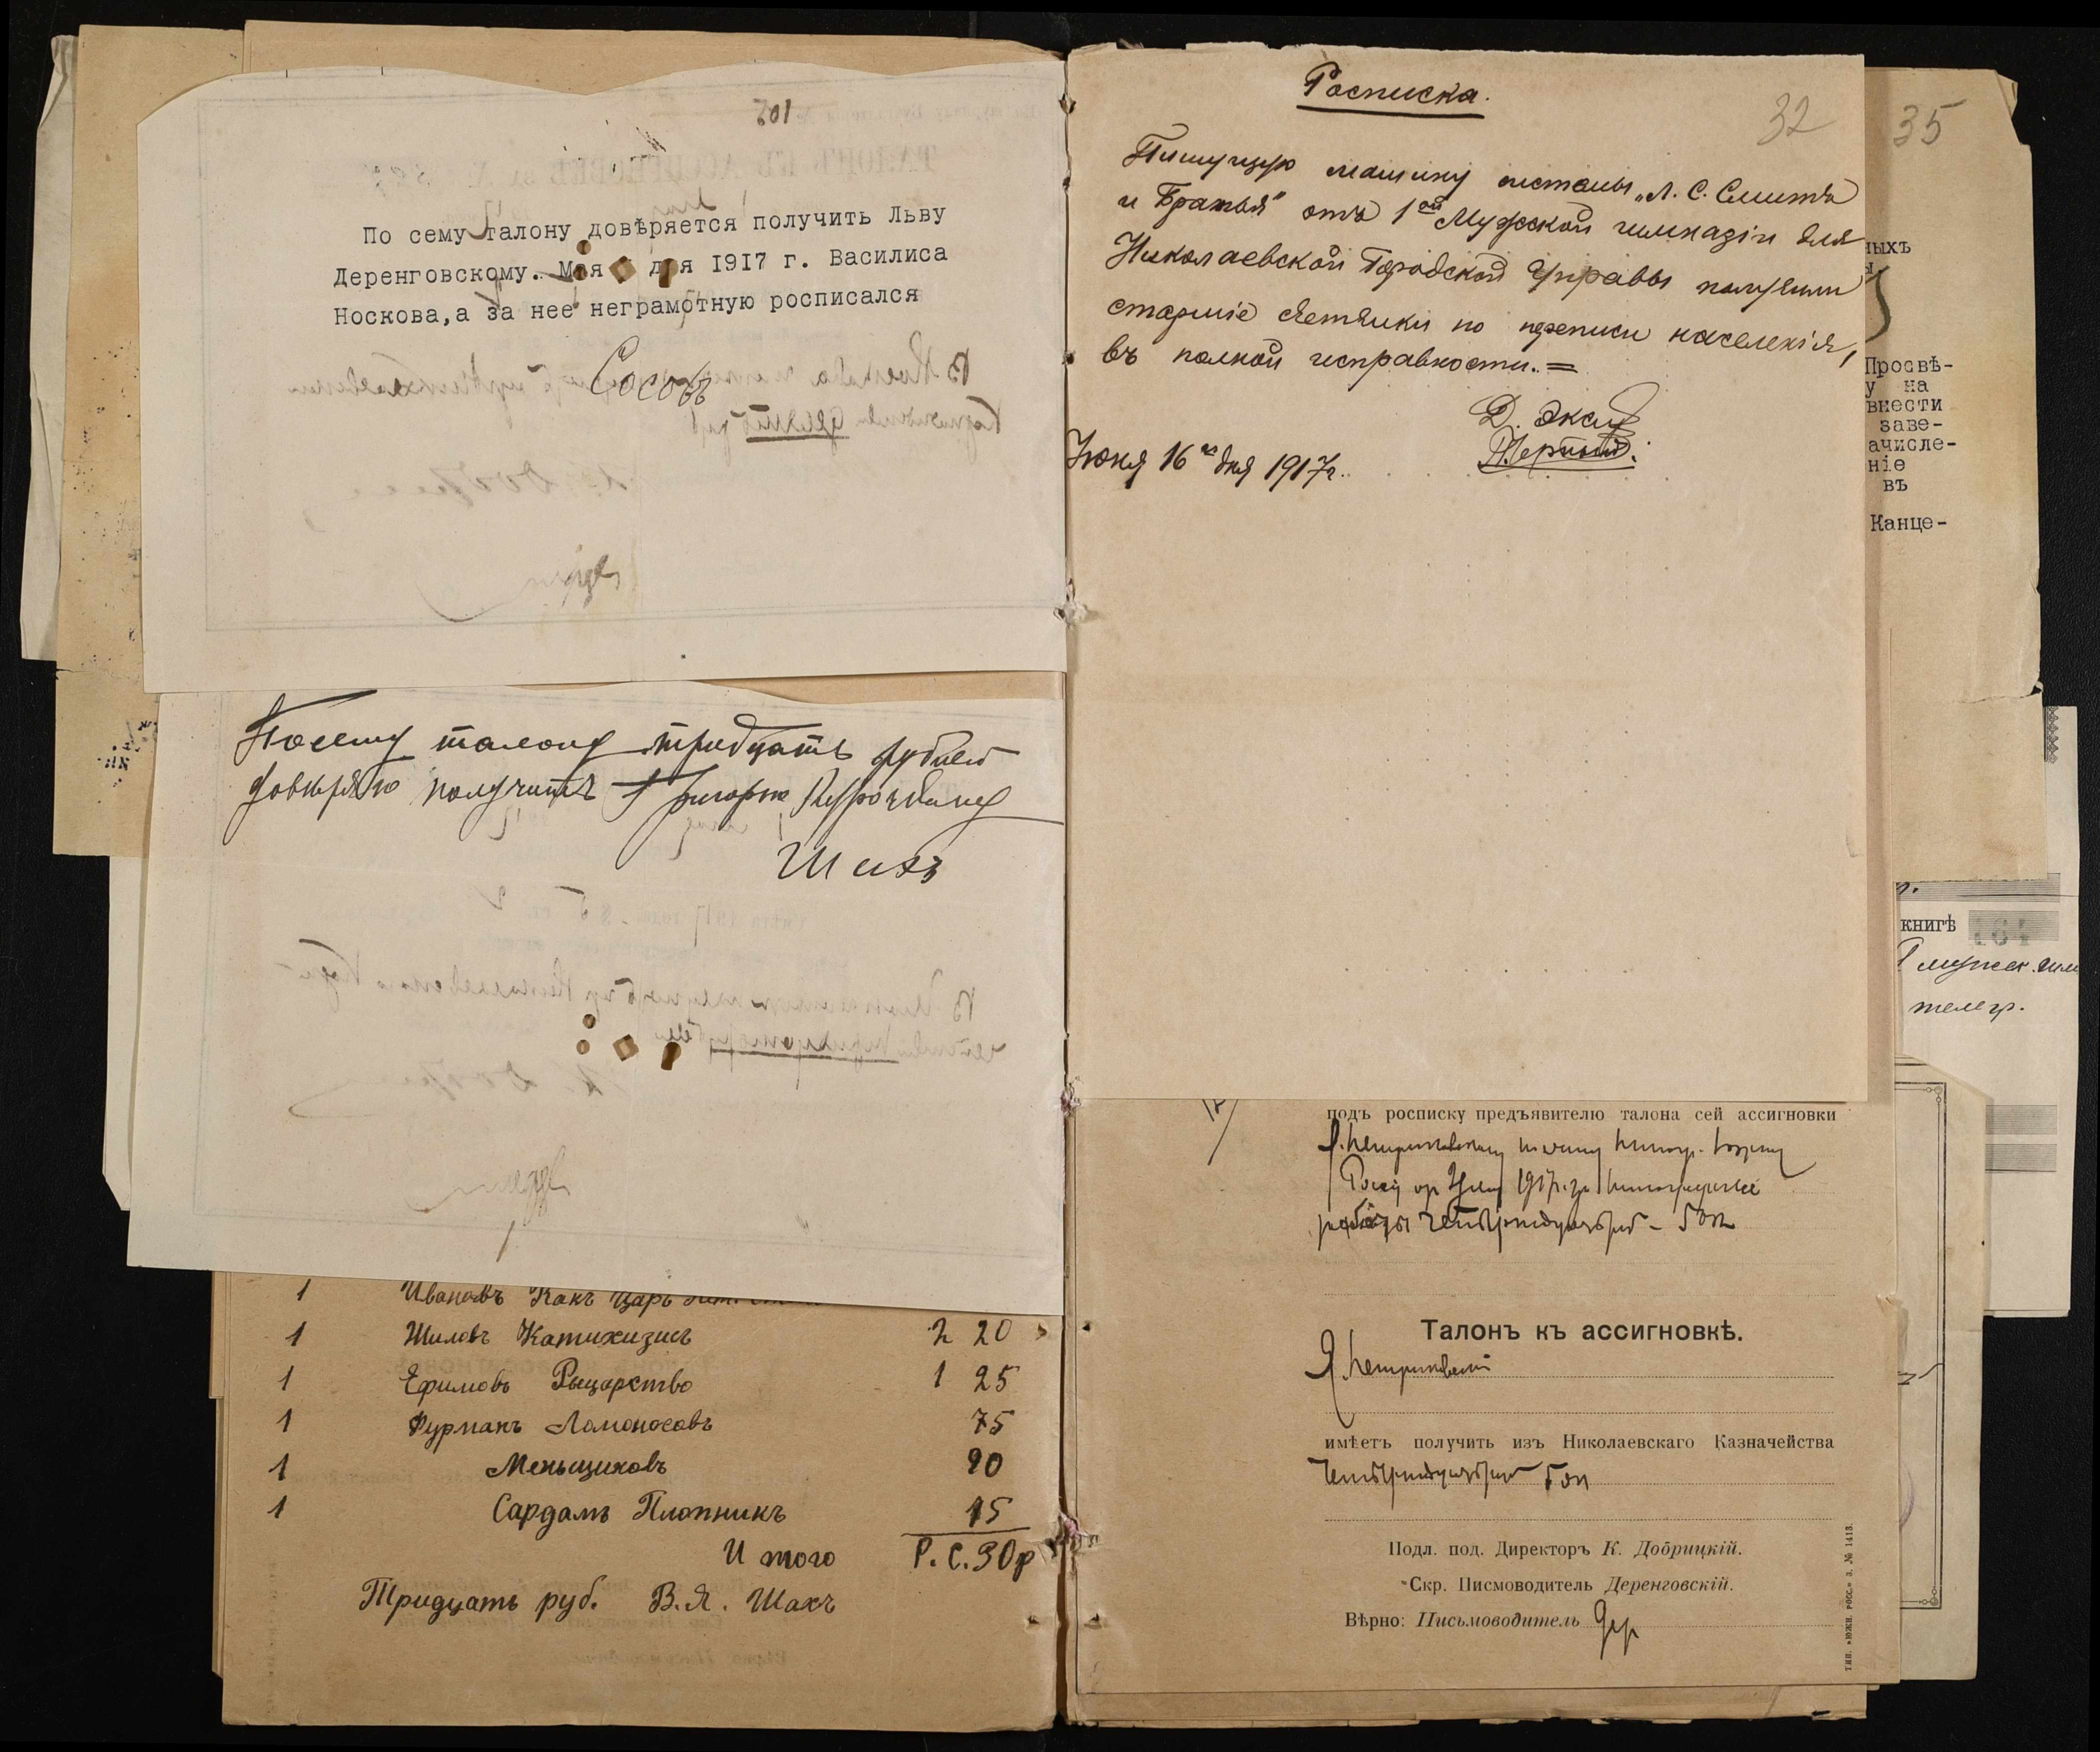 По сему талону довѣряется получить Льву
Деренговскому. Мая дня 1917 г. Василиса
Носкова, а за нее неграмотную росписался
Сосовъ
По сему талону тридцать рублей
довѣряю получить Григорію Курочкину
Шахъ
1 Ивановъ Какъ Царь
1 Шиловъ Катихизисъ 2 20
1 Ефимовъ Рыцарство 1 25
1 Фурманъ Ломоносовъ 75
1 Меньщиковъ 90
1 Сардамъ Плотникъ 15
И того Р. С. 30 р
Тридцать руб. В. Я. Шахъ
32
Росписка.
Пишущую машину системы „Л. С. Смитъ
и Братья" отъ 1ой Мужской гимназіи для
Николаевской Городской Управы получили
старшіе счетчики по переписи населенія,
въ полной исправности. =
Д.
Июня 16го дня 1917 г.
подъ росписку предъявителю талона сей ассигновки
1917 г. за
работы четыреста
Талонъ къ ассигновкѣ.
имѣетъ получить изъ Николаевскаго Казначейства
Подл. под. Директоръ К. Добрицкій.
Скр. Письмоводитель Деренговскій.
Вѣрно: Письмоводитель Дер
ТИП. «ЮЖН. РОСС.» З. № 1413.
35
ныхъ
Просвѣ-
у на
внести
заве-
ачисле-
ніе
въ
Канце-
книгѣ 164
телегр.